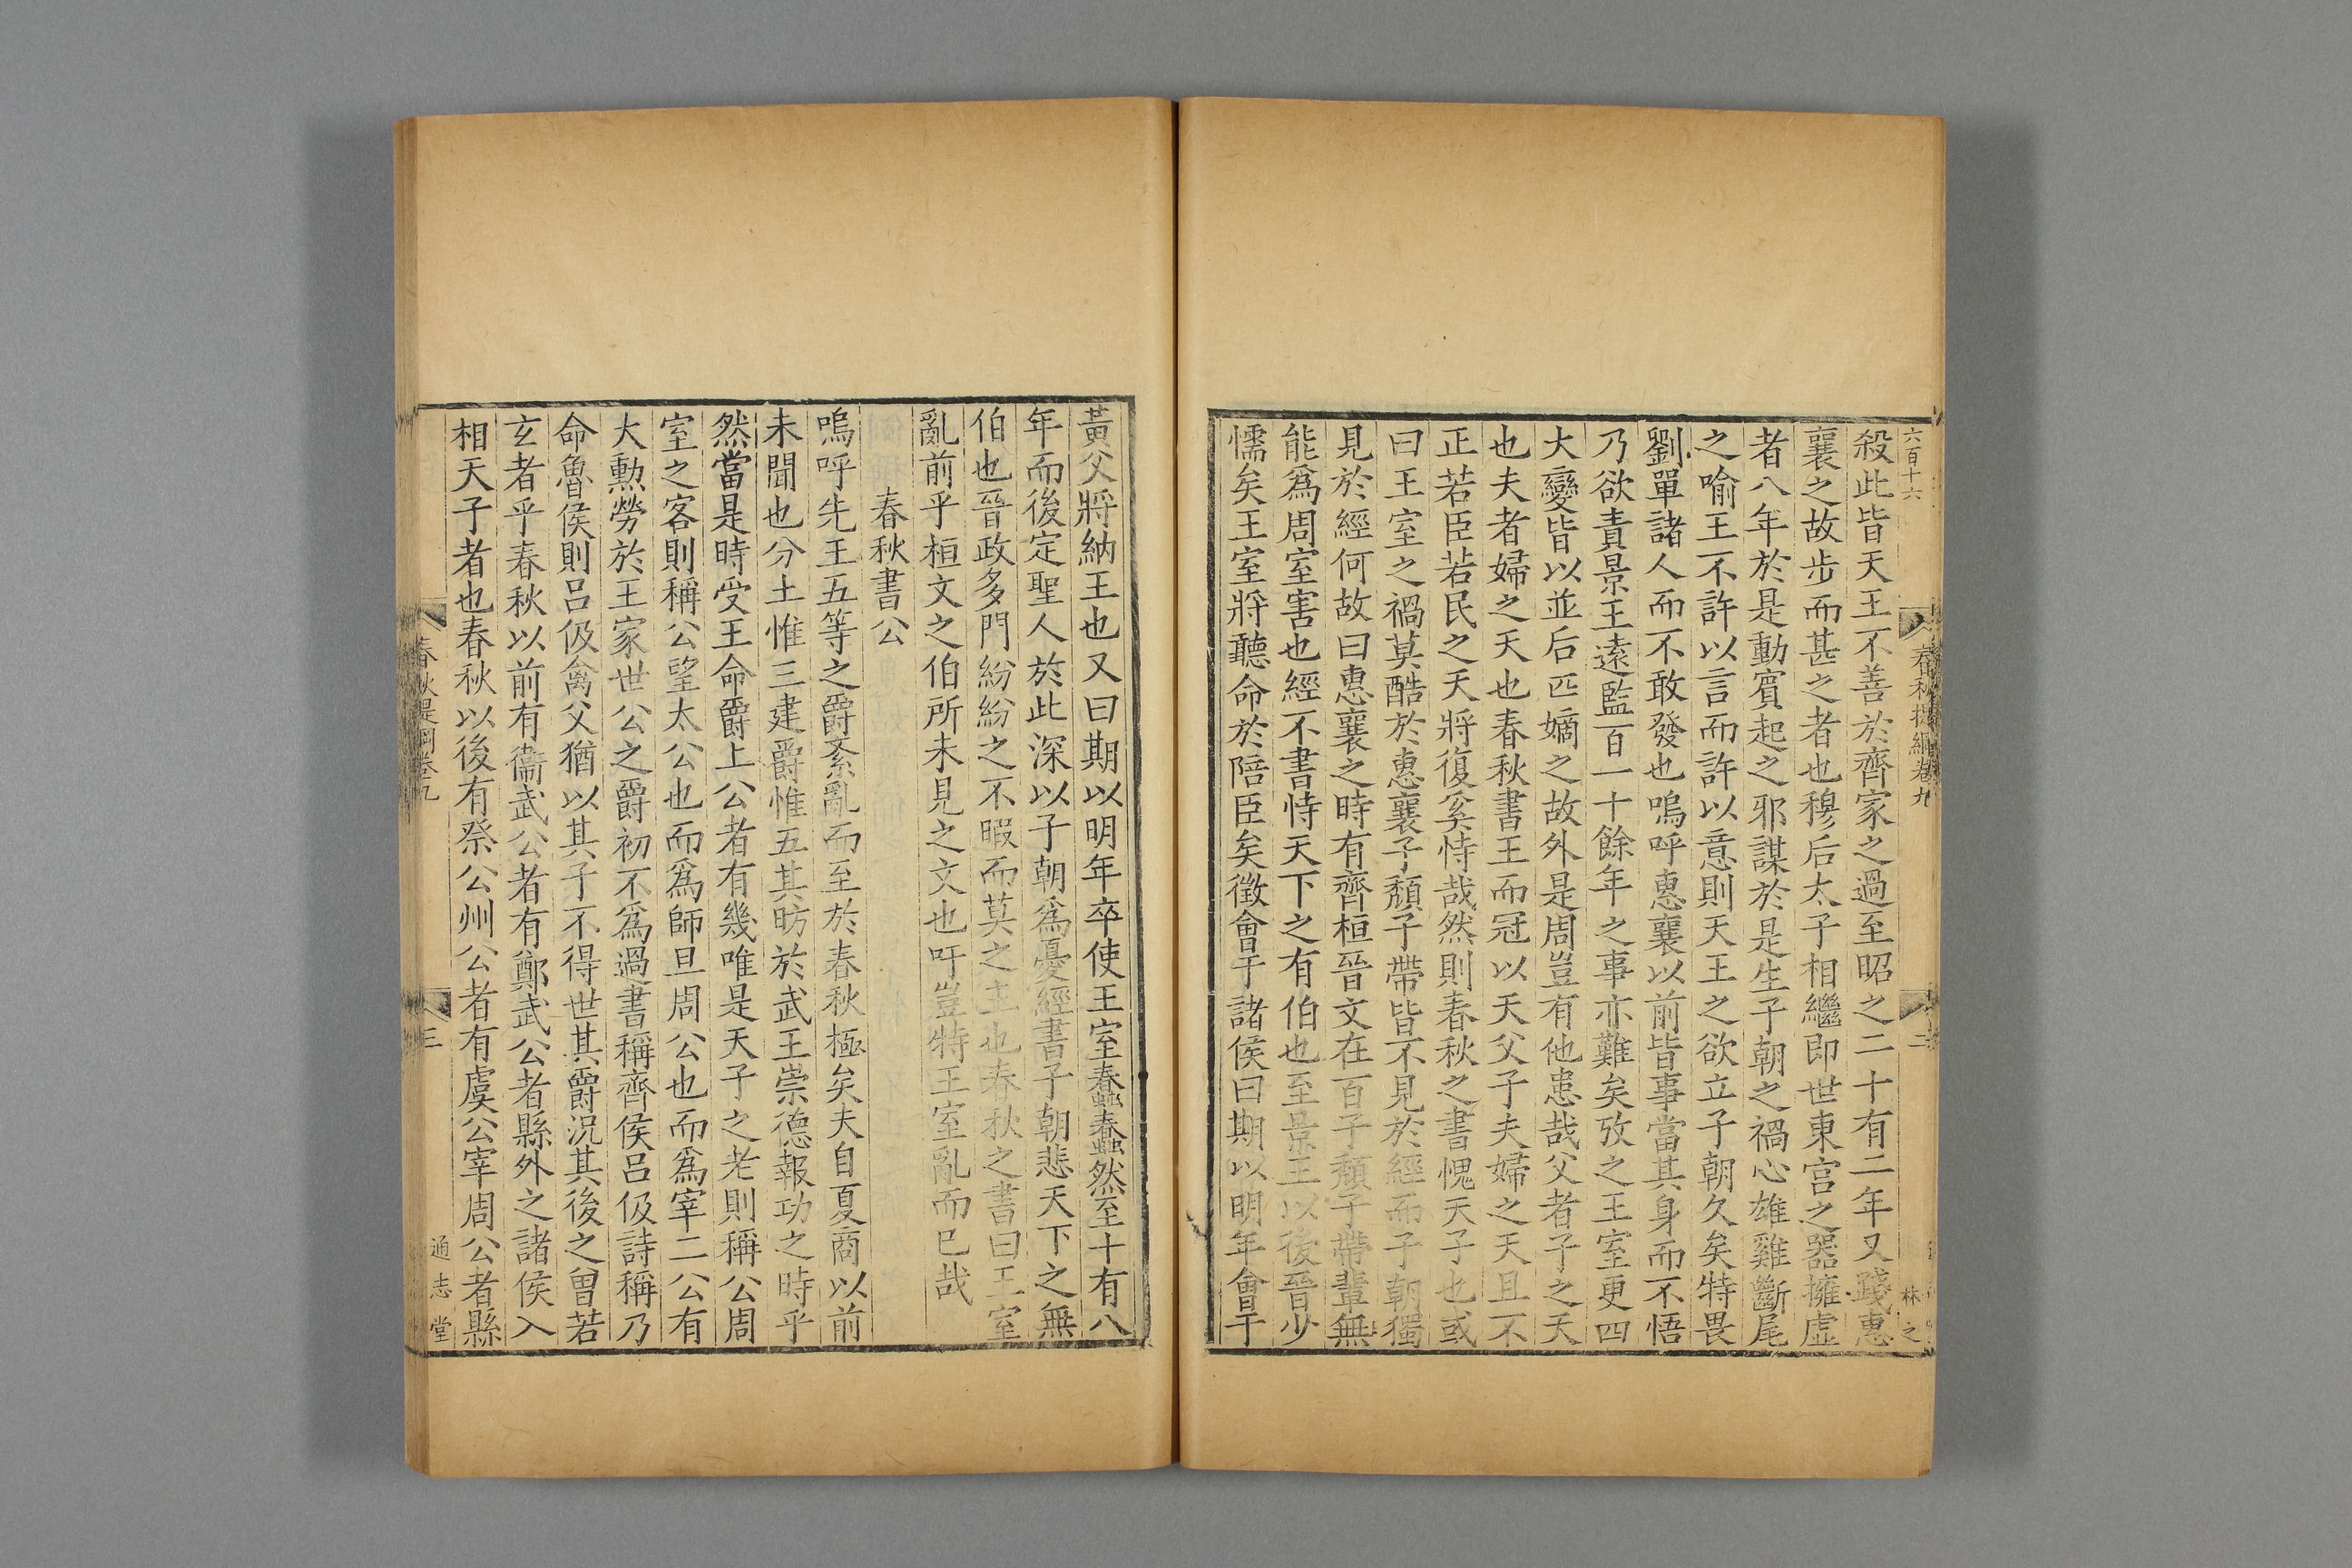 六百十六
春秋提綱卷九
二
林之
殺此皆天王不善於齊家之過至昭之二十有二年又踐惠
襄之故步而甚之者也穆后太子相繼即世東宮之器擁虛
者八年於是動賓起之邪謀於是生子朝之禍心雄雞斷尾
之喻王不許以言而許以意則天王之欲立子朝久矣特畏
劉單諸人而不敢發也嗚呼惠襄以前皆事當其身而不悟
乃欲責景王遠監百一十餘年之事亦難矣攷之王室更四
大變皆以並后匹嫡之故外是周豈有他患哉父者子之天
也夫者婦之天也春秋書王而冠以天父子夫婦之天且不
正若臣若民之天將復奚恃哉然則春秋之書愧天子也或
曰王室之禍莫酷於惠襄子頹子帶皆不見於經而子朝獨
見於經何故曰惠襄之時有齊桓晉文在百子頹子帶輩無
能爲周室害也經不書恃天下之有伯也至景王以後晉少
懦矣王室將聽命於陪臣矣徵會于諸侯曰期以明年會于
黃父將納王也又曰期以明年卒使王室蠢蠢然至十有八
年而後定聖人於此深以子朝爲憂經書子朝悲天下之無
伯也晉政多門紛紛之不暇而莫之主也春秋之書曰王室
亂前乎桓文之伯所未見之文也吁豈特王室亂而已哉
春秋書公
嗚呼先王五等之爵紊亂而至於春秋極矣夫自夏商以前
未聞也分土惟三建爵惟五其昉於武王崇德報功之時乎
然當是時受王命爵上公者有幾唯是天子之老則稱公周
室之客則稱公望太公也而爲師旦周公也而爲宰二公有
大勳勞於王家世公之爵初不爲過書稱齊侯呂伋詩稱乃
命魯侯則呂伋禽父猶以其子不得世其爵況其後之曾若
玄者乎春秋以前有衞武公者有鄭武公者縣外之諸侯入
相天子者也春秋以後有祭公州公者有虞公宰周公者縣
春秋提綱卷九
三
通志堂